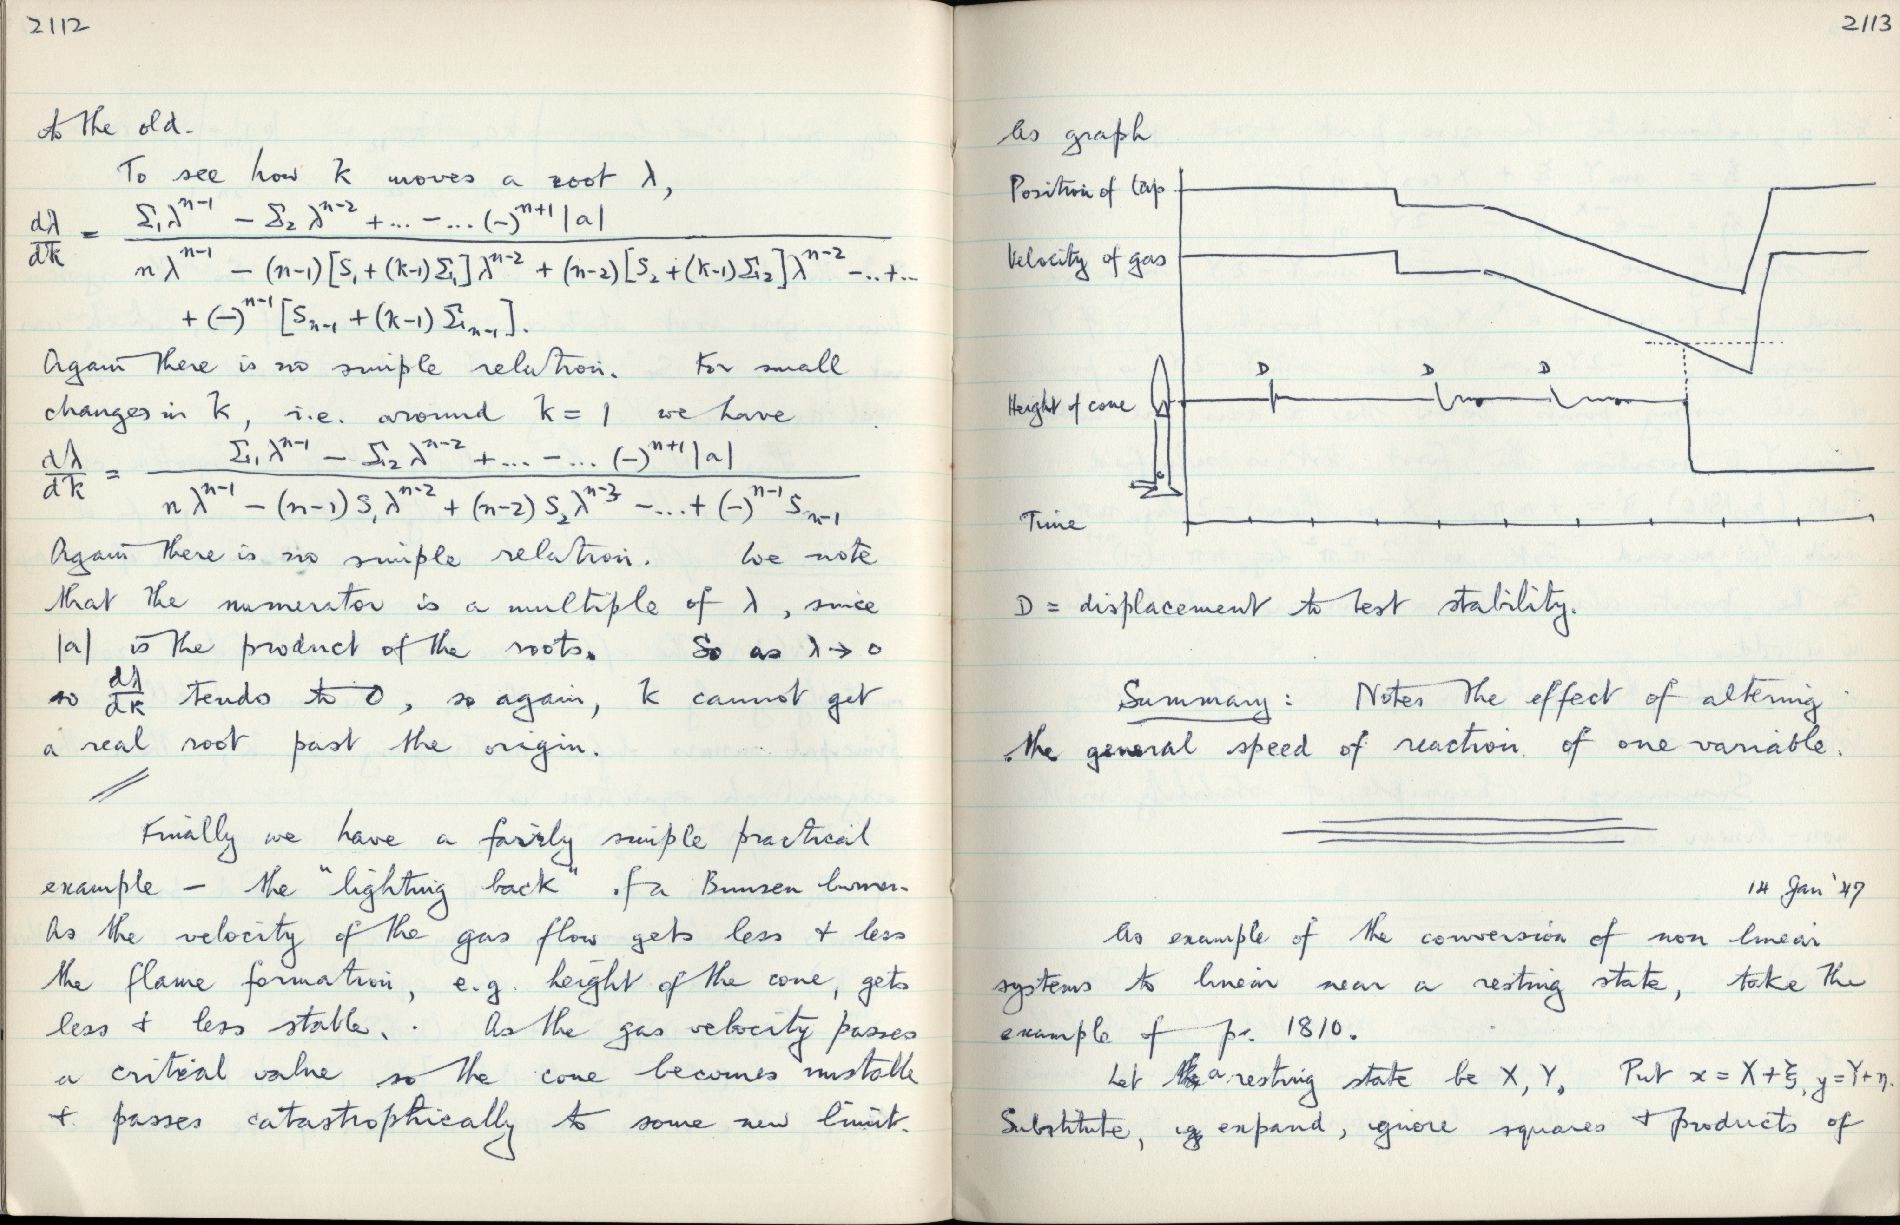 2112
to the old.
To see how k moves a root λ,
dλ/dk = Σ₁λⁿ⁻¹ − Σ₂λⁿ⁻² + ... − ... (−)ⁿ⁺¹|a|
nλⁿ⁻¹ − (n−1)[S₁+(k−1)Σ₁]λⁿ⁻² + (n−2)[S₂+(k−1)Σ₂]λⁿ⁻² − ... + ...
+ (−)ⁿ⁻¹[Sₙ₋₁ + (k−1)Σₙ₋₁].
Again there is no simple relation. For small
changes in k, i.e. around k = 1 we have
dλ/dk = Σ₁λⁿ⁻¹ − Σ₂λⁿ⁻² + ... − ... (−)ⁿ⁺¹|a|
nλⁿ⁻¹ − (n−1)S₁λⁿ⁻² + (n−2)S₂λⁿ⁻³ − ... + (−)ⁿ⁻¹Sₙ₋₁
Again there is no simple relation. We note
that the numerator is a multiple of λ, since
|a| is the product of the roots. So as λ → 0
so dλ/dk tends to 0, so again, k cannot get
a real root past the origin.
Finally we have a fairly simple practical
example – the "lighting back" of a Bunsen burner.
As the velocity of the gas flow gets less & less
the flame formation, e.g. height of the cone, gets
less & less stable. As the gas velocity passes
a critical value so the cone becomes unstable
& passes catastrophically to some new limit.
2113
As graph
Position of tap
Velocity of gas
D D D
Height of cone
Time
D = displacement to test stability.
Summary: Notes the effect of altering
the general speed of reaction of one variable.
14 Jan '47
As example of the conversion of non linear
systems to linear near a resting state, take the
example of p. 1810.
Let a resting state be X, Y. Put x = X+ξ, y = Y+η.
Substitute, expand, ignore squares & products of